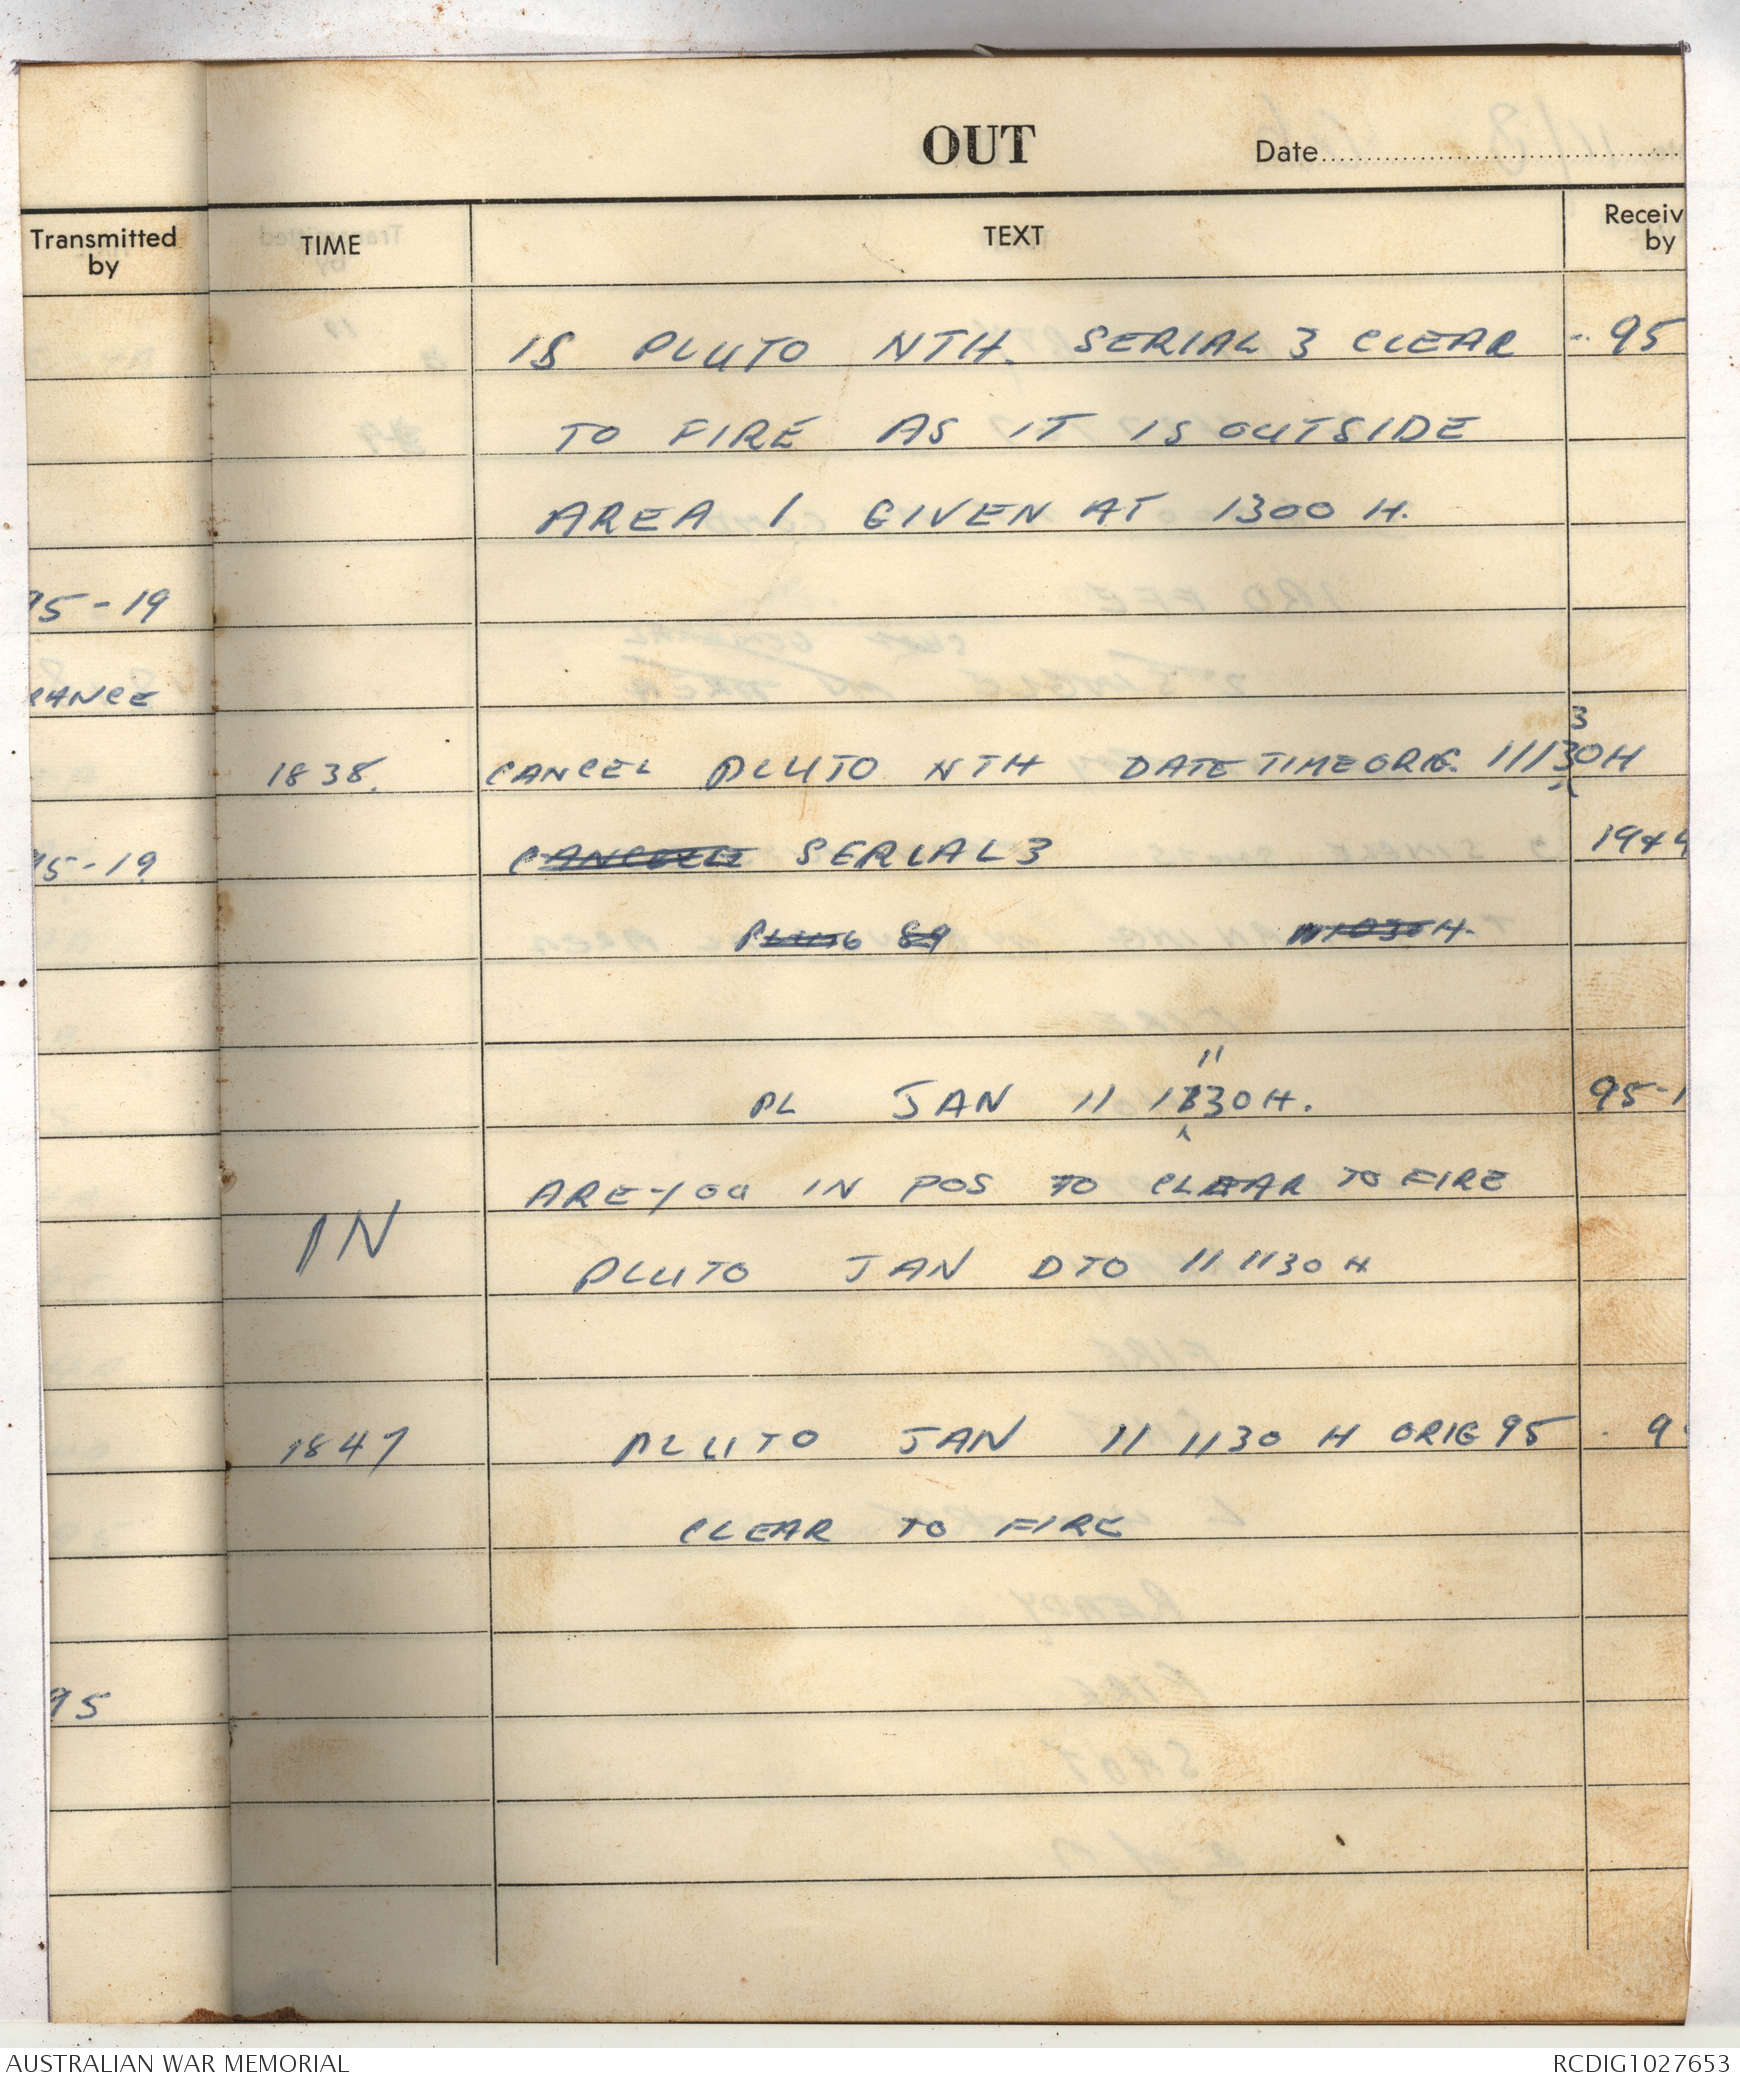 OUT
Date
Transmitted
by
TIME
TEXT
Receiv
by
IS PLUTO NTH. SERIAL 3 CLEAR 95
TO FIRE AS IT IS OUTSIDE
AREA 1 GIVEN AT 1300 H.
95-19
RANCE
3
1838. CANCEL PLUTO NTH DATE TIME ORIG. 111130H
95-19 SERIAL 3 1944
PLUTO 89
11
PL JAN 11 1130H. 95-1
ARE YOU IN POS TO CLEAR TO FIRE
IN
PLUTO JAN DTO 11 1130 H
1847 PLUTO JAN 11 1130 H ORIG 95 9
CLEAR TO FIRE
95
AUSTRALIAN WAR MEMORIAL
RCDIG1027653